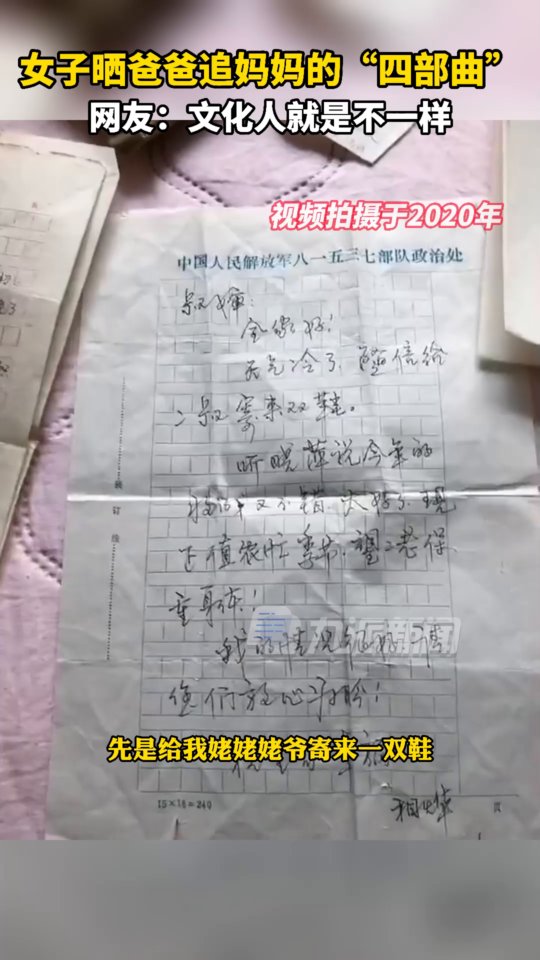 女子晒爸爸追妈妈的“四部曲”
网友：文化人就是不一样
视频拍摄于2020年
中国人民解放军八一五三七部队政治处
叔婶：
全家好！
天气冷了，
二叔寄来双鞋。
听晓萍说今年的
又不错，太好了，现
下值农忙季节，望二老保
重身体！
我的情况很好，请
您们放心
装订线
先是给我姥姥姥爷寄来一双鞋
15×16=240
页